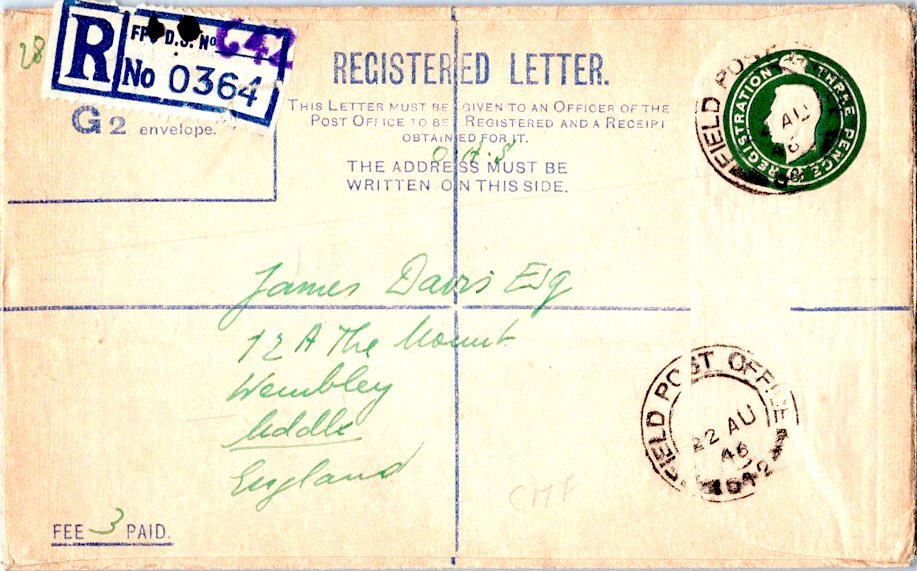 28
R
FPO D.S. No 642
No 0364
G2 envelope.
REGISTERED LETTER.
THIS LETTER MUST BE GIVEN TO AN OFFICER OF THE
POST OFFICE TO BE REGISTERED AND A RECEIPT
OBTAINED FOR IT.
O.A.S
THE ADDRESS MUST BE
WRITTEN ON THIS SIDE.
REGISTRATION THREE PENCE
FIELD POST
AU
James Davis Esq
12A The Mount
Wembley
Middlx
England
FIELD POST OFFICE
22 AU
46
642
CMF
FEE 3 PAID.